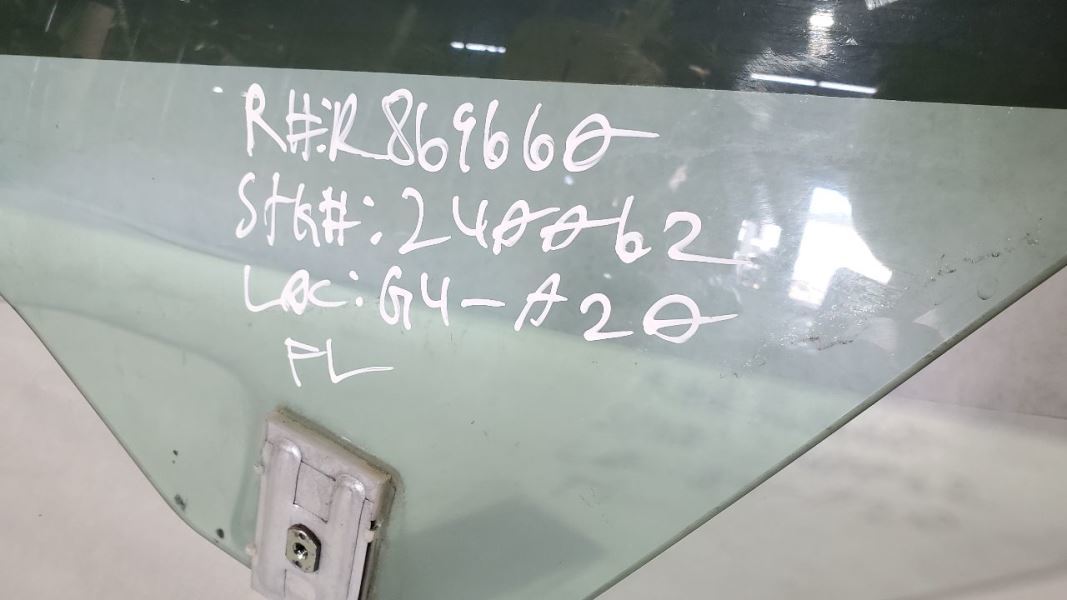 R#:R869660
STK#:240062
Loc:G4-A20
FL